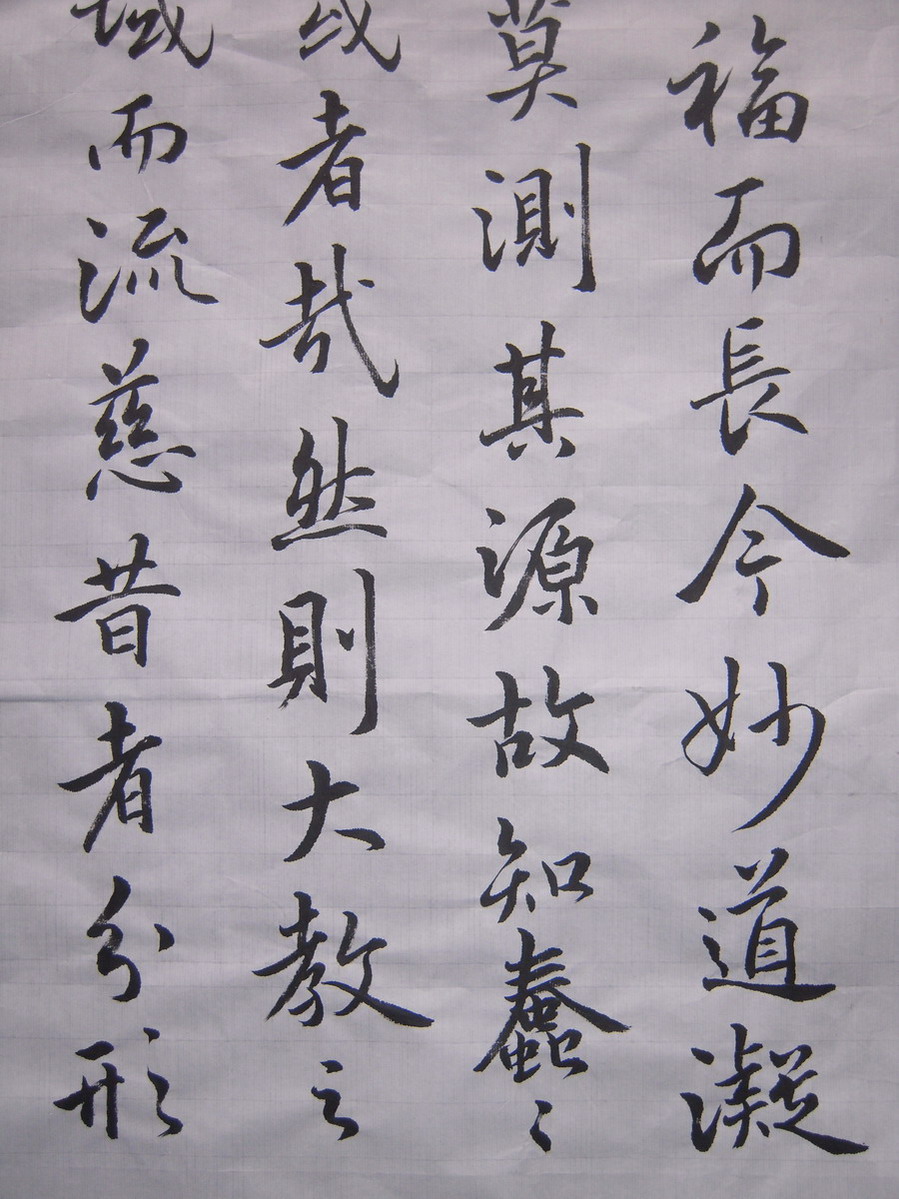 福而長今妙道凝
莫測其源故知蠢〻
或者哉然則大教之
域而流慈昔者分形